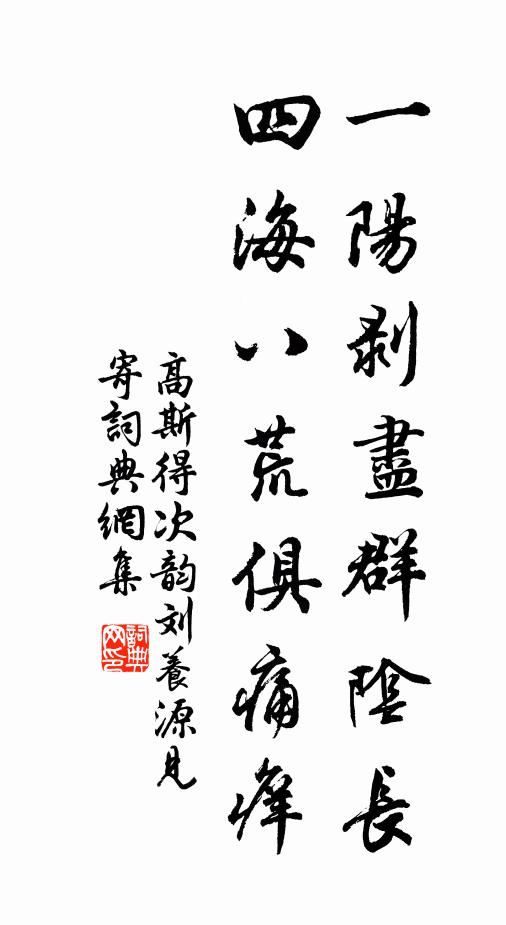 一陽剝盡群陰長
四海八荒俱痛癢
高斯得次韵刘養源見
寄詞典網集
詞典
网印